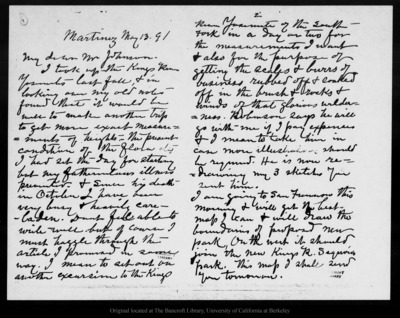 Martinez May 13. 91
My dear Mr Johnson.
I took up the Kings Riv
Yosemite last fall & in
looking over my old notes
found that it would be
well to make another trip
to get more exact measure-
ments of heights - the present
condition of the flora &c
I had set the day for starting
but my father-in-law's illness
prevented - & since his death
in October I have been
very busy & heavily care-
laden. Dont feel able to
write well but of course I
must haggle through the
article I promised in some
way. I mean to set out on
another excursion to the Kings
2
River Yosemite of the South
Fork in a day or two for
the measurements I want
& also for the purpose of
getting the scales & burrs of
business rubbed off & soaked
off in the brush & rocks &
winds of that glorious wilder-
ness. Robinson says he will
go with me if I pay expenses
& I mean to take him in
case more illustrations should
be required. He is now re-
drawing my 3 sketches you
sent him.
I am going to San Francisco this
morning & will get the best
map I can & will draw the
boundaries of proposed new
park. On the west it should
join the new Kings R. Sequoia
park. This map I shall send
you tomorrow.
Original located at The Bancroft Library, University of California at Berkeley